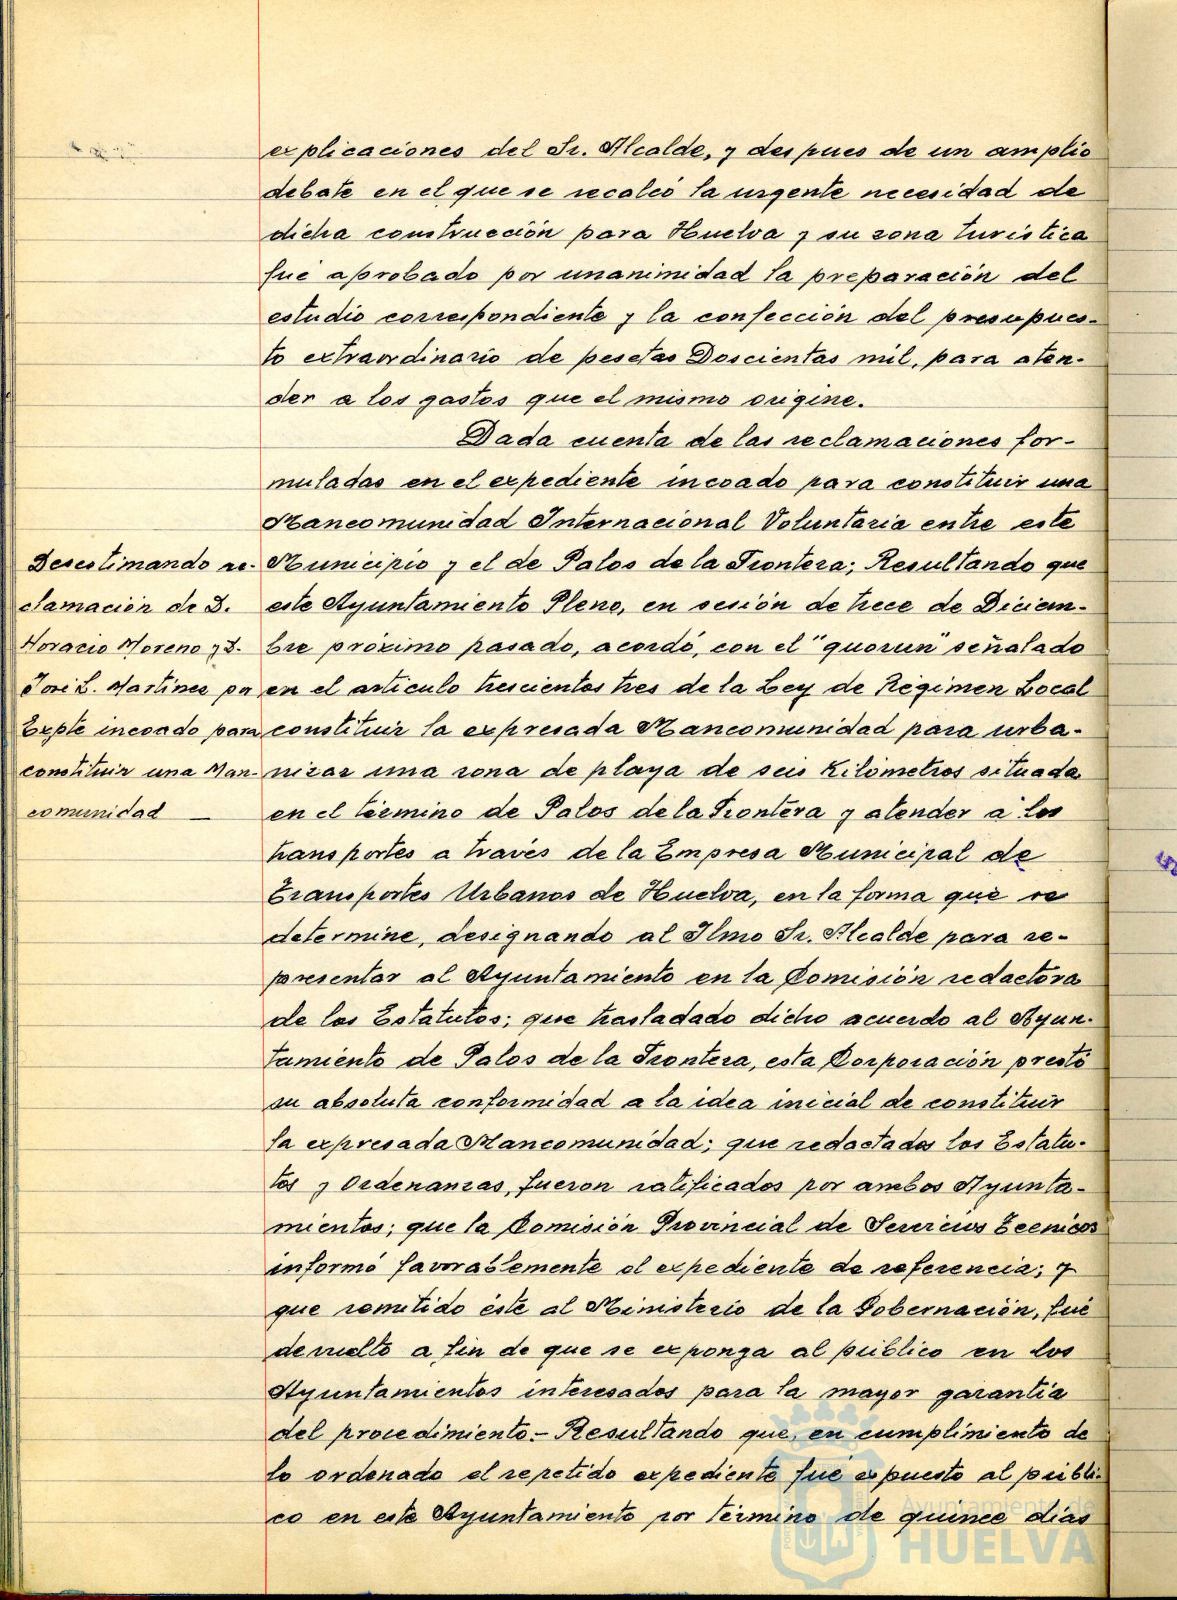 explicaciones del Sr. Alcalde, y despues de un amplio
debate en el que se recalcó la urgente necesidad de
dicha construcción para Huelva y su zona turística
fué aprobado por unanimidad la preparación del
estudio correspondiente y la confección del presupues-
to extraordinario de pesetas Doscientas mil, para aten-
der a los gastos que el mismo origine.
Dada cuenta de las reclamaciones for-
muladas en el expediente incoado para constituir una
Mancomunidad Internacional Voluntaria entre este
Municipio y el de Palos de la Frontera; Resultando que
este Ayuntamiento Pleno, en sesión de trece de Diciem-
bre próximo pasado, acordó, con el "quorun" señalado
en el artículo trescientos tres de la Ley de Régimen Local
constituir la expresada Mancomunidad para urba-
nizar una zona de playa de seis Kilómetros situada
en el término de Palos de la Frontera y atender a los
transportes a través de la Empresa Municipal de
Transportes Urbanos de Huelva, en la forma que se
determine, designando al Ilmo Sr. Alcalde para re-
presentar al Ayuntamiento en la Comisión redactora
de los Estatutos; que trasladado dicho acuerdo al Ayun-
tamiento de Palos de la Frontera, esta Corporación prestó
su absoluta conformidad a la idea inicial de constituir
la expresada Mancomunidad; que redactados los Estatu-
tos y Ordenanzas, fueron ratificados por ambos Ayunta-
mientos; que la Comisión Provincial de Servicios Tecnicos
informó favorablemente el expediente de referencia; y
que remitido éste al Ministerio de la Gobernación, fué
devuelto a fin de que se exponga al público en los
Ayuntamientos interesados para la mayor garantía
del procedimiento.- Resultando que, en cumplimiento de
lo ordenado el repetido expediente fué expuesto al públi-
co en este Ayuntamiento por término de quince días
Desestimando re-
clamación de D.
Horacio Moreno y D.
José L. Martínez en
Expte incoado para
constituir una Man-
comunidad —
Ayuntamiento de
HUELVA